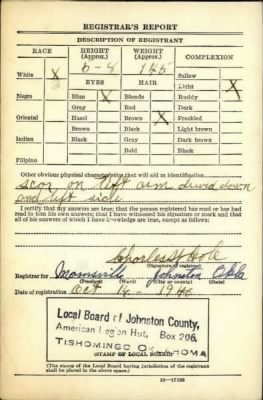 REGISTRAR'S REPORT
DESCRIPTION OF REGISTRANT
RACE HEIGHT (Approx.) WEIGHT (Approx.) COMPLEXION
5-8 125
White X EYES HAIR Sallow
Light X
Negro Blue X Blonde Ruddy
Gray Red Dark
Oriental Hazel Brown X Freckled
Brown Black Light brown
Indian Black Gray Dark brown
Bald Black
Filipino
Other obvious physical characteristics that will aid in identification
Scar on left arm down
and left side
I certify that my answers are true; that the person registered has read or has had
read to him his own answers; that I have witnessed his signature or mark and that
all of his answers of which I have knowledge are true, except as follows:
Charles
(Signature of registrar)
Registrar for Johnston Okla
(Precinct) (Ward) (City or county) (State)
Date of registration Oct 16 - 1940
Local Board of Johnston County,
American Legion Hut, Box 206,
TISHOMINGO OKLAHOMA
(STAMP OF LOCAL BOARD)
(The stamp of the Local Board having jurisdiction of the registrant
shall be placed in the above space.)